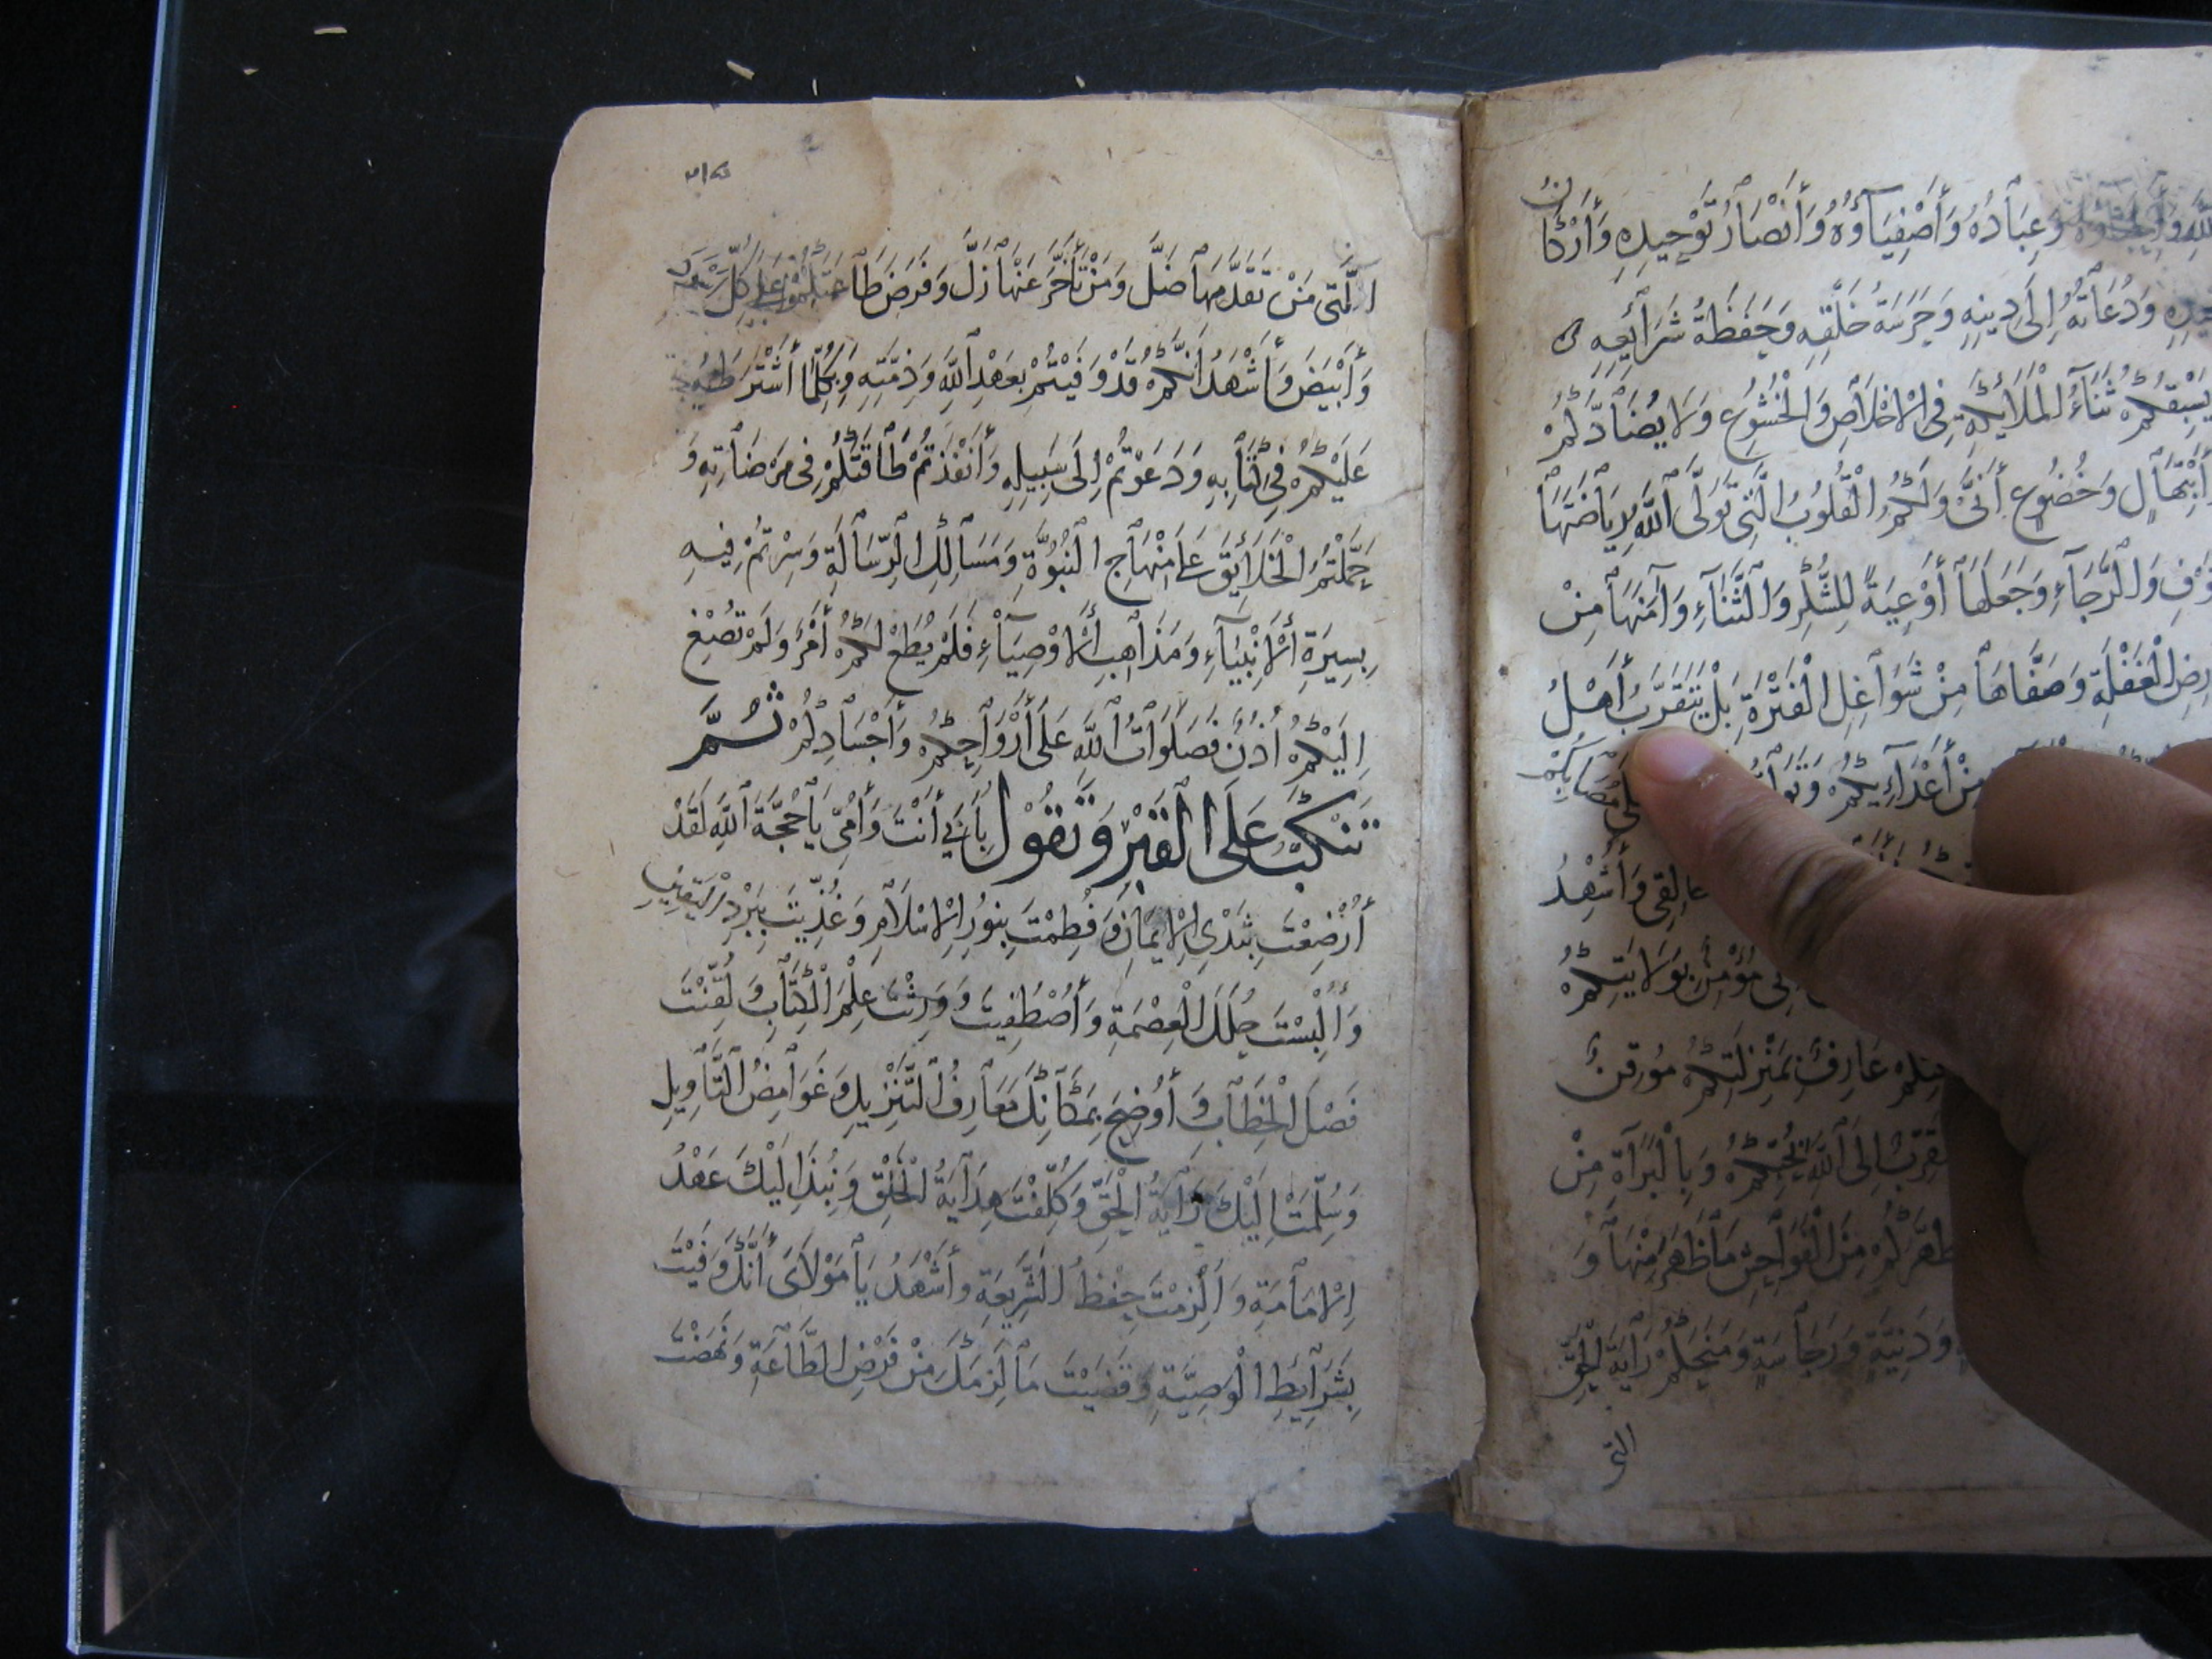 نُ
وَعِبَادُهُ وَأَصْفِيَاؤُهُ وَأَنْصَارُ تَوْحِيدِهِ وَأَرْكَا
وَدُعَاتُهُ إِلَى دِينِهِ وَحَرَسَةُ خَلَقِهِ وَحَفَظَةُ شَرَائِعِهِ
يَسْبِقُكُمْ ثَنَاءُ الْمَلَائِكَةِ فِي الْإِخْلَاصِ وَالْخُشُوعِ وَلَا يُضَادُّكُمْ
ابْتِهَالٍ وَخُضُوعٍ أَنَّى وَلَكُمُ الْقُلُوبُ الَّتِي تَوَلَّى اللَّهُ رِيَاضَتَهَا
وَالرَّجَاءِ وَجَعَلَهَا أَوْعِيَةً لِلشُّكْرِ وَالثَّنَاءِ وَآمَنَهَا مِنْ
الْغَفْلَةِ وَصَفَّاهَا مِنْ شَوَاغِلِ الْفَتْرَةِ بَلْ يَتَقَرَّبُ أَهْلُ
مِنْ أَعْدَائِكُمْ مُصَابِكُمْ
وَأُشْهِدُ
مُؤْمِنٌ بِوَلَايَتِكُمْ
عَارِفٌ بِمَنْزِلَتِكُمْ مُوقِنٌ
إِلَى اللَّهِ بِحُبِّكُمْ وَبِالْبَرَآءَةِ مِنْ
مِنَ الْفَوَاحِشِ مَا ظَهَرَ مِنْهَا وَ
وَدَنِيَّةٍ وَرَجَاسَةٍ وَمَنَحَكُمْ رَايَةَ الْحَقِّ
التي
الَّتِي مَنْ تَقَدَّمَهَا ضَلَّ وَمَنْ تَأَخَّرَ عَنْهَا زَلَّ وَفَرَضَ طَاعَتَكُمْ عَلَى كُلِّ أَسْوَدَ
وَأَبْيَضَ وَأَشْهَدُ أَنَّكُمْ قَدْ وَفَيْتُمْ بِعَهْدِ اللَّهِ وَذِمَّتِهِ وَبِكُلِّمَا اشْتَرَطَهُ
عَلَيْكُمْ فِي كِتَابِهِ وَدَعَوْتُمْ إِلَى سَبِيلِهِ وَأَنْفَذْتُمْ طَاقَتَكُمْ فِي مَرْضَاتِهِ وَ
حَمَلْتُمُ الْخَلَائِقَ عَلَى مِنْهَاجِ النُّبُوَّةِ وَمَسَالِكِ الرِّسَالَةِ وَسِرْتُمْ فِيهِ
بِسِيرَةِ الْأَنْبِيَاءِ وَمَذَاهِبِ الْأَوْصِيَاءِ فَلَمْ يُطَعْ لَكُمْ أَمْرٌ وَلَمْ تُصْغِ
إِلَيْكُمْ أُذُنٌ فَصَلَوَاتُ اللَّهِ عَلَى أَرْوَاحِكُمْ وَأَجْسَادِكُمْ ثُمَّ
تَنْكَبُّ عَلَى الْقَبْرِ وَتَقُولُ بِأَبِي أَنْتَ وَأُمِّي يَا حُجَّةَ اللَّهِ لَقَدْ
أُرْضِعْتَ بِثَدْيِ الْإِيمَانِ وَفُطِمْتَ بِنُورِ الْإِسْلَامِ وَغُذِّيتَ بِبَرْدِ الْيَقِينِ
وَأُلْبِسْتَ حُلَلَ الْعِصْمَةِ وَاصْطُفِيتَ وَوَرِثْتَ عِلْمَ الْكِتَابِ وَلُقِّنْتَ
فَصْلَ الْخِطَابِ وَأُوضِحَ بِمَكَانِكَ مَعَارِفُ التَّنْزِيلِ وَغَوَامِضُ التَّأْوِيلِ
وَسُلِّمَتْ إِلَيْكَ رَايَةُ الْحَقِّ وَكُلِّفْتَ هِدَايَةَ الْخَلْقِ وَنُبِذَ إِلَيْكَ عَهْدُ
الْإِمَامَةِ وَأُلْزِمْتَ حِفْظَ الشَّرِيعَةِ وَأَشْهَدُ يَا مَوْلَايَ أَنَّكَ وَفَيْتَ
بِشَرَائِطِ الْوَصِيَّةِ وَقَضَيْتَ مَا لَزِمَكَ مِنْ فَرْضِ الطَّاعَةِ وَنَهَضْتَ